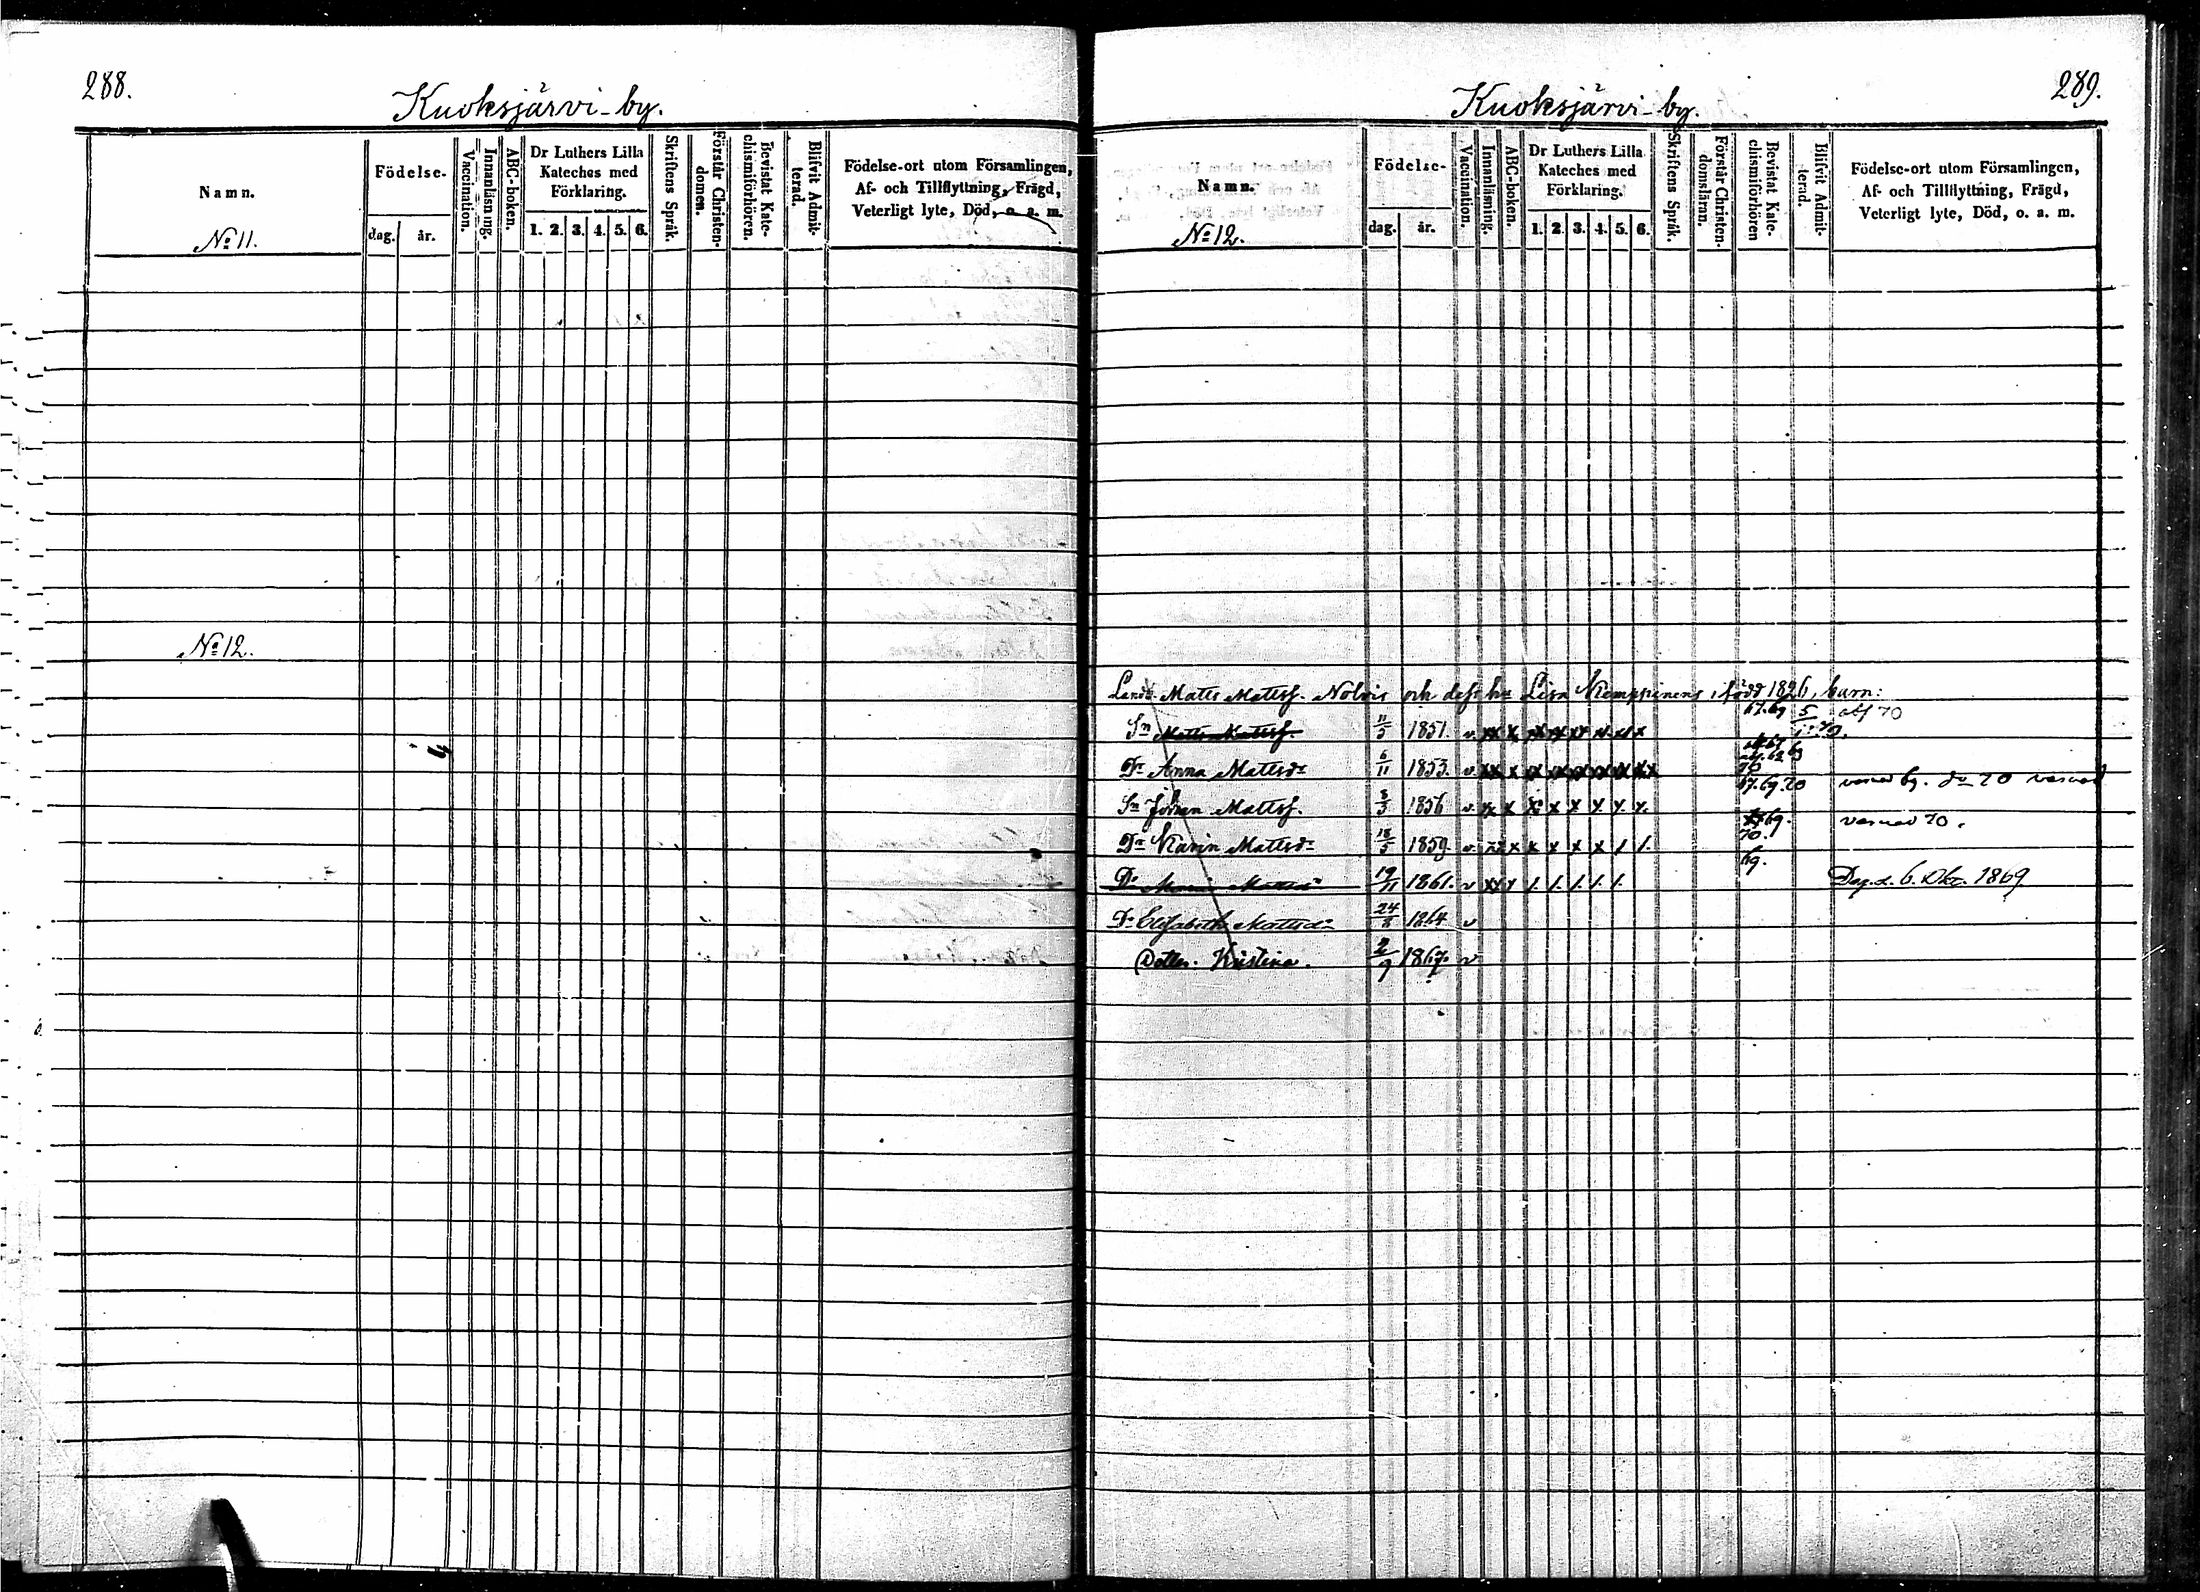 288.
Kuoksjärvi-by.
Namn.
Födelse-
dag. år.
Vaccination.
Innanläsning.
ABC-boken.
Dr Luthers Lilla Kateches med Förklaring.
1. 2. 3. 4. 5. 6.
Skriftens Språk.
Förstår Christendomen.
Bevistat Katechismiförhören.
Blifvit Admitterad.
Födelse-ort utom Församlingen,
Af- och Tillflyttning, Frägd,
Veterligt lyte, Död, o. a. m.
No 11.
No 12.
289.
Kuoksjärvi-by.
Namn.
Födelse-
dag. år.
Vaccination.
Innanläsning.
ABC-boken.
Dr Luthers Lilla Kateches med Förklaring.
1. 2. 3. 4. 5. 6.
Skriftens Språk.
Förstår Christendomsläran.
Bevistat Katechismiförhören
Blifvit Admitterad.
Födelse-ort utom Församlingen,
Af- och Tillflyttning, Frägd,
Veterligt lyte, Död, o. a. m.
No 12.
Matts Mattsf. och Lisa född 1826, barn:
Sn Matts Mattsf. 11/5 1851. v. 67.69 abf 70
Dr Anna Mattsdr 6/11 1853. v.
Sn Johan Mattsf. 8/3 1856 v. 67.69.70
Dr Karin Mattsdr 18/5 1859 v. 69. 70.
Dr Maria Mattsdr 19/11 1861. v 69. 6. Okt. 1869
Dr Elisabeth Mattsdr 24/8 1864 v
Dotter. Kristina. 2/9 1867. v